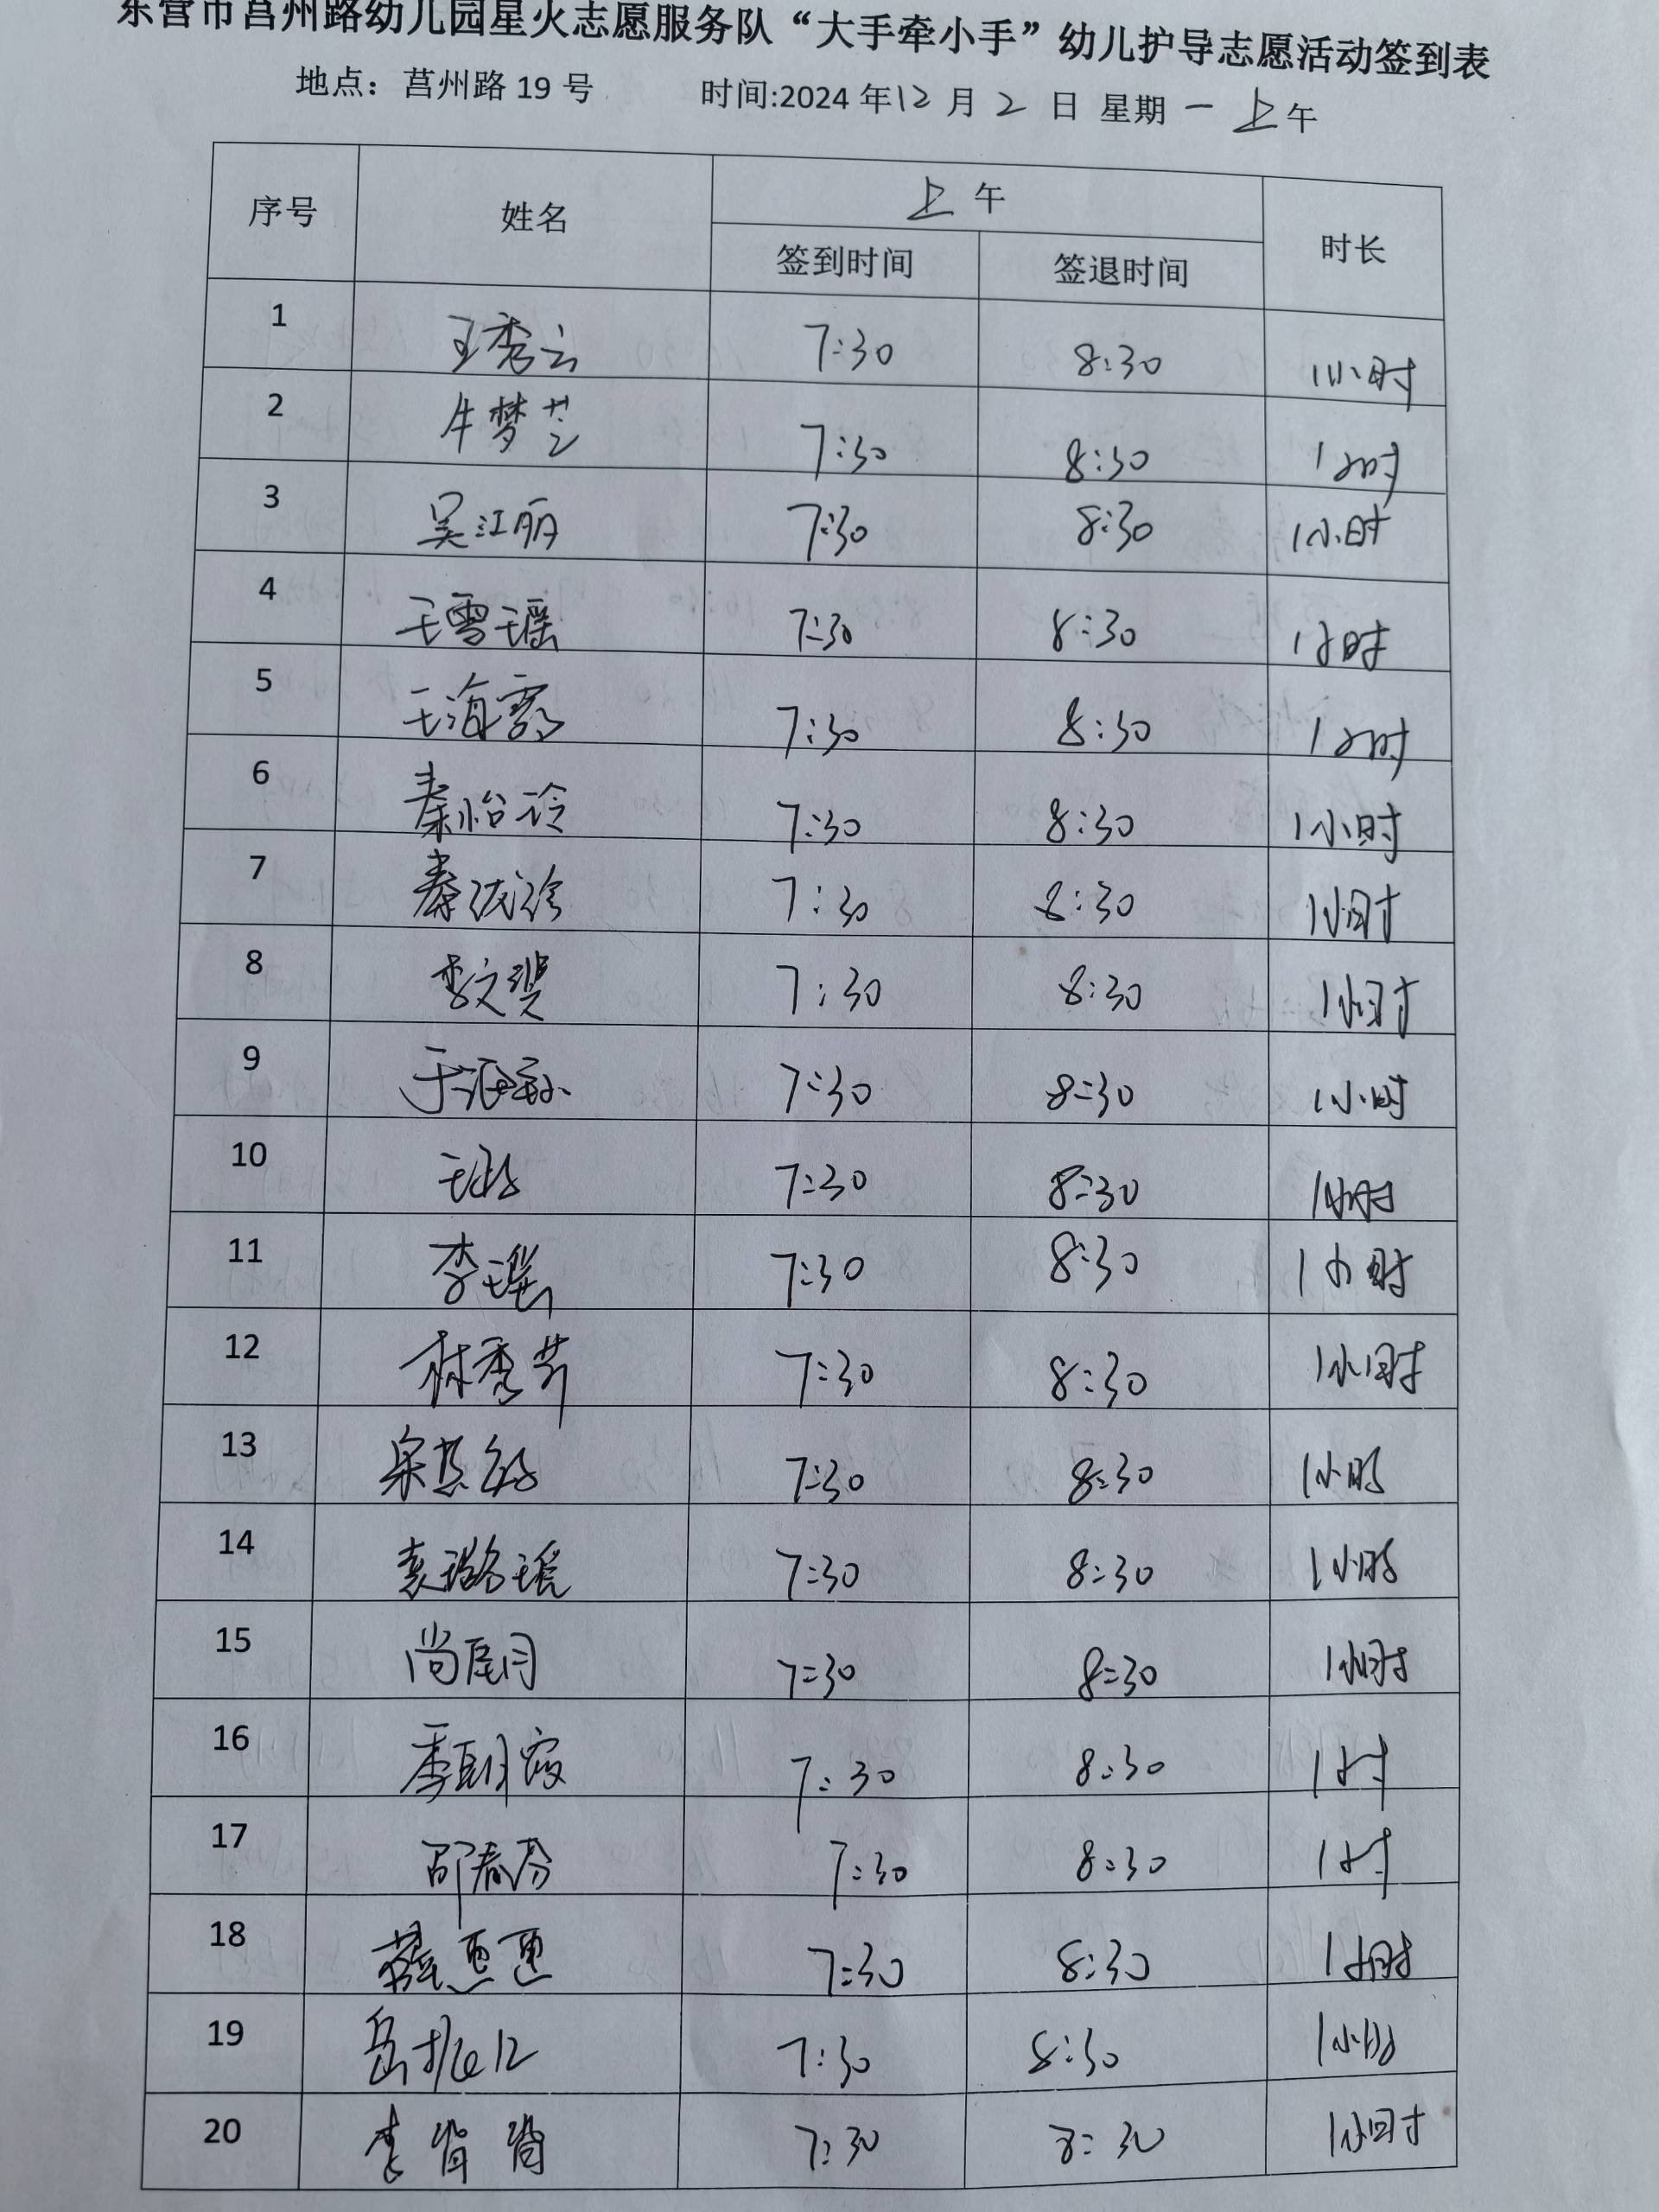 东营市莒州路幼儿园星火志愿服务队“大手牵小手”幼儿护导志愿活动签到表
地点：莒州路 19 号 时间:2024 年 12 月 2 日 星期 一 上午
序号 姓名 上 午 时长
签到时间 签退时间
1 王秀云 7:30 8:30 1小时
2 牛梦芝 7:30 8:30 1小时
3 吴江丽 7:30 8:30 1小时
4 王雪瑶 7:30 8:30 1小时
5 王海霞 7:30 8:30 1小时
6 秦怡玲 7:30 8:30 1小时
7 秦 7:30 8:30 1小时
8 李文斐 7:30 8:30 1小时
9 于海 7:30 8:30 1小时
10 王 7:30 8:30 1小时
11 李瑶 7:30 8:30 1小时
12 林秀芹 7:30 8:30 1小时
13 7:30 8:30 1小时
14 袁璐瑶 7:30 8:30 1小时
15 尚居月 7:30 8:30 1小时
16 李朝霞 7:30 8:30 1小时
17 邵春芬 7:30 8:30 1小时
18 薛更更 7:30 8:30 1小时
19 岳 7:30 8:30 1小时
20 李肖肖 7:30 8:30 1小时